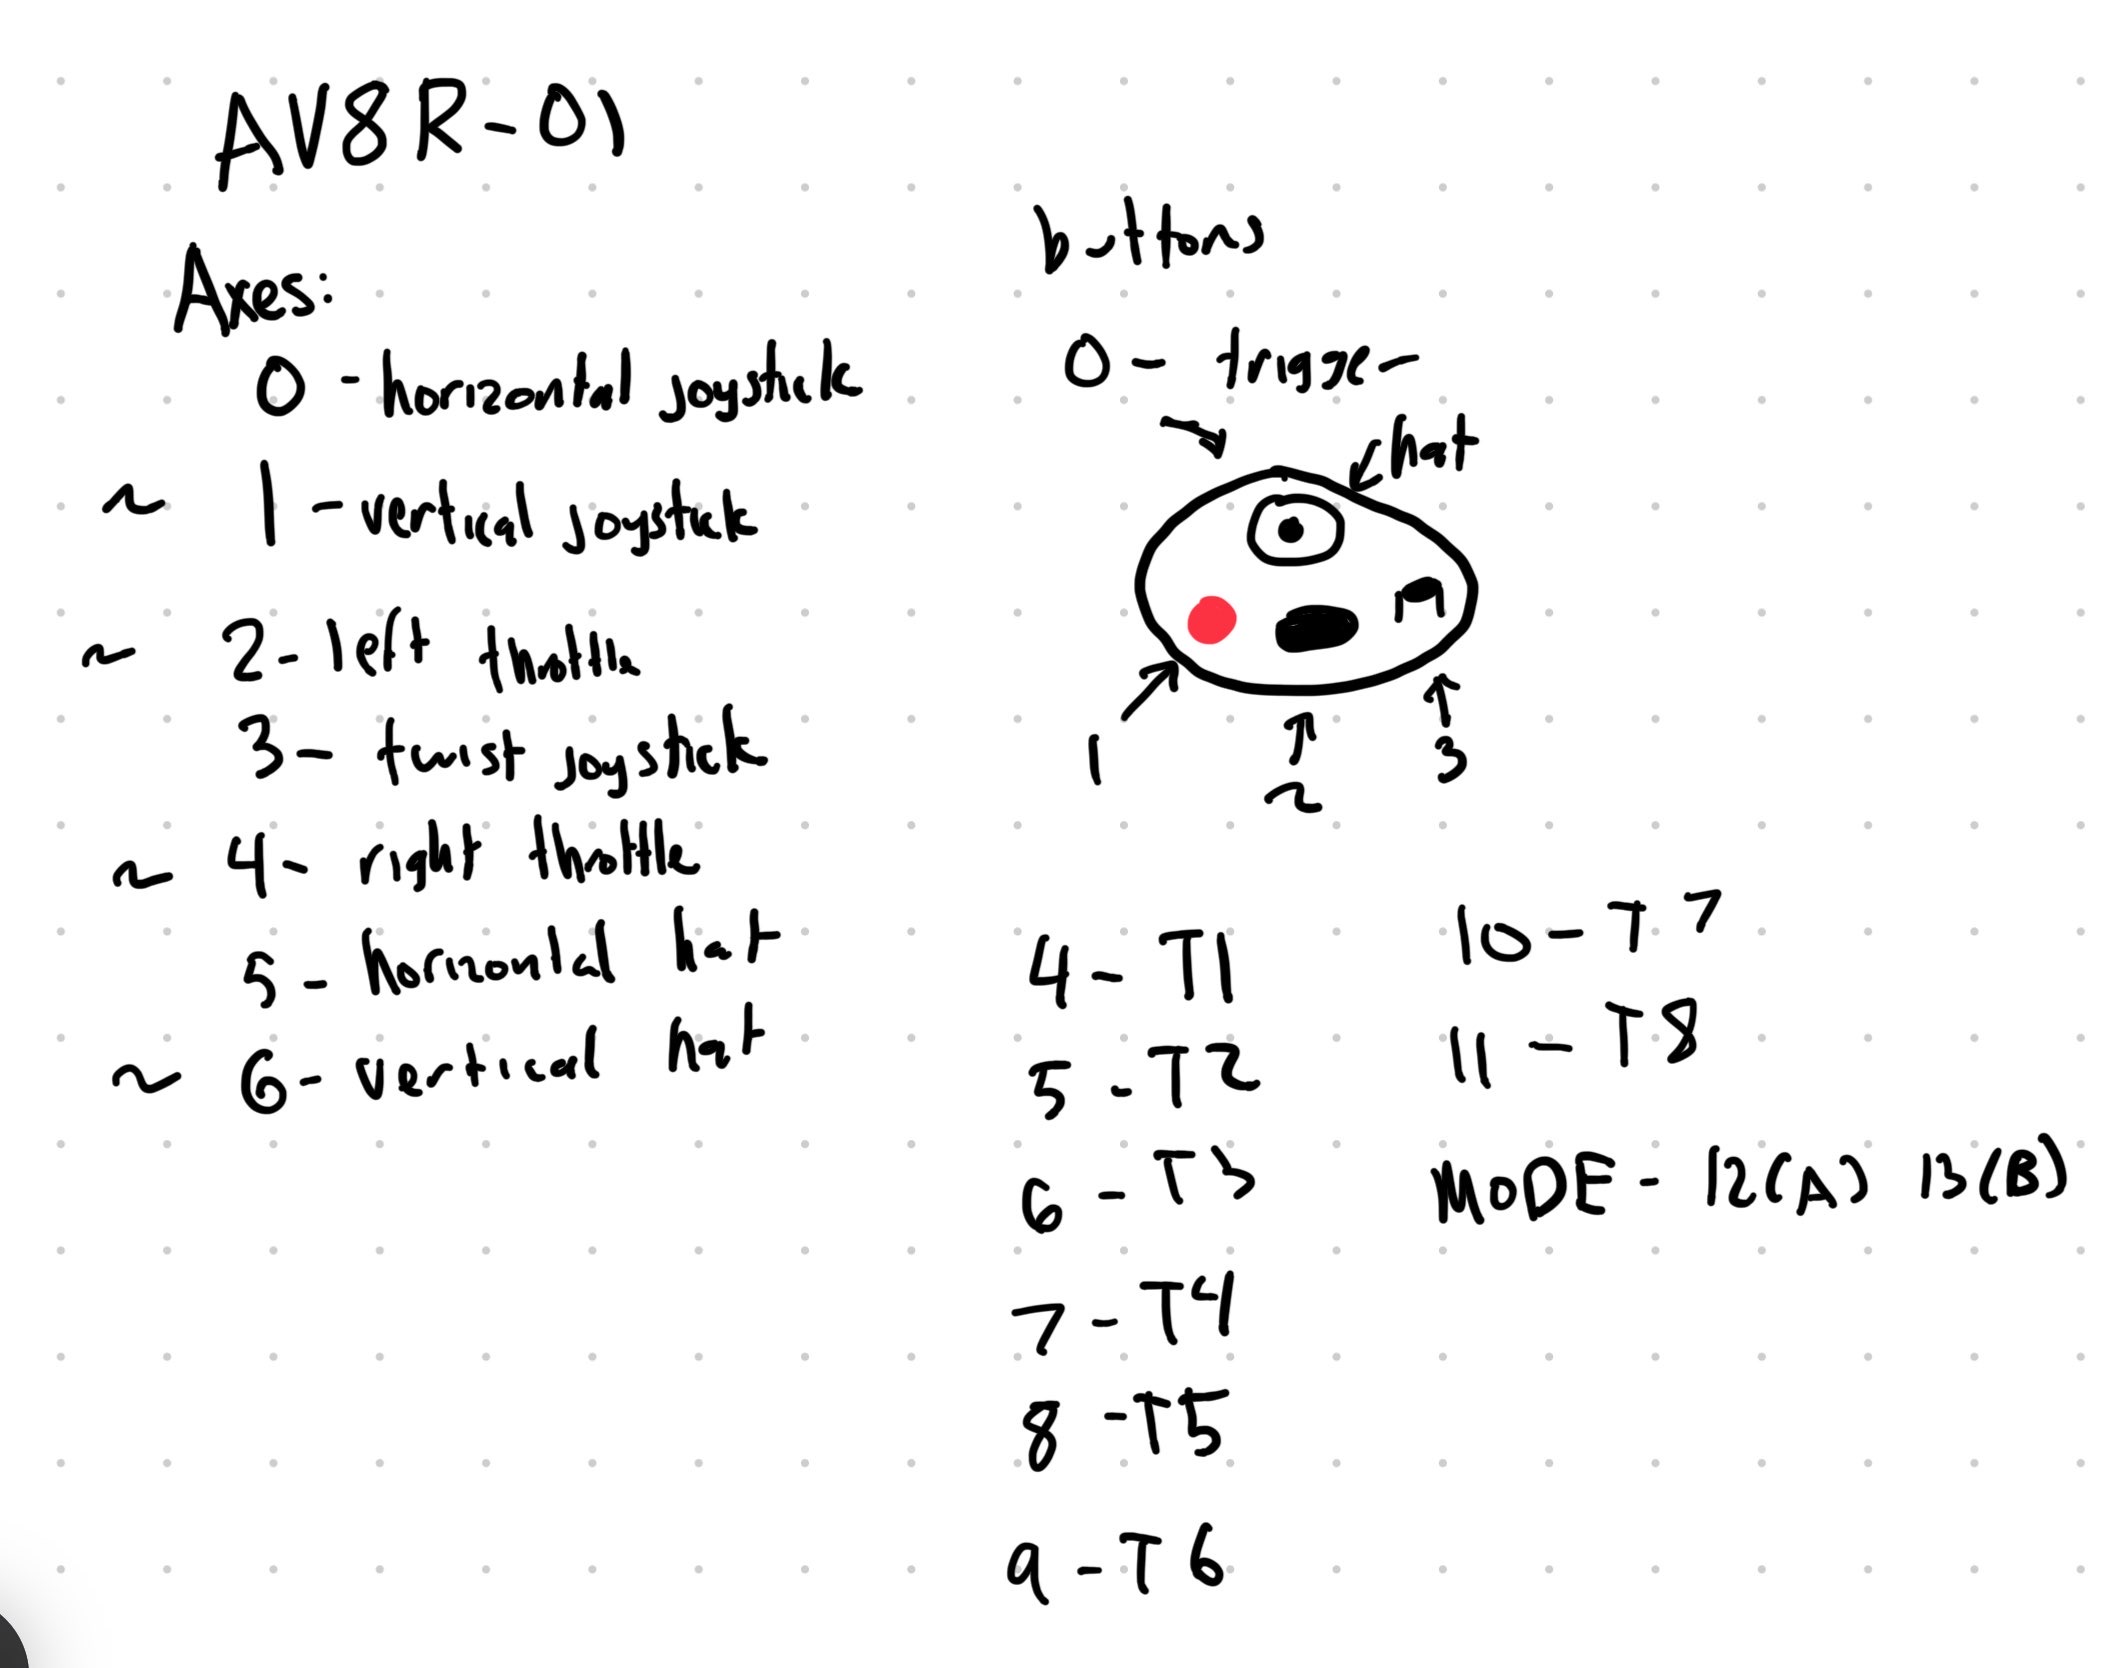 AV8R-01
Axes:
0 - horizontal joystick
~ 1 - vertical joystick
~ 2 - left throttle
3 - twist joystick
~ 4 - right throttle
5 - horizontal hat
~ 6 - vertical hat
buttons
0 - trigger
hat
1
2
3
4 - T1
5 - T2
6 - T3
7 - T4
8 - T5
9 - T6
10 - T7
11 - T8
MODE - 12(A) 13(B)